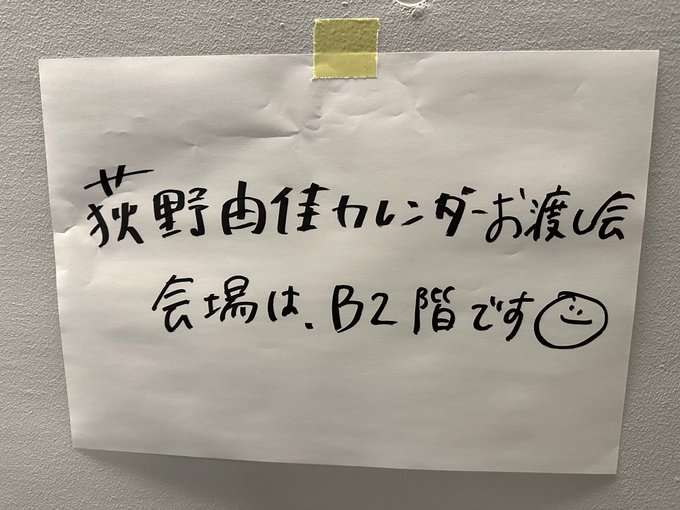 荻野由佳カレンダーお渡し会
会場は、B2階です